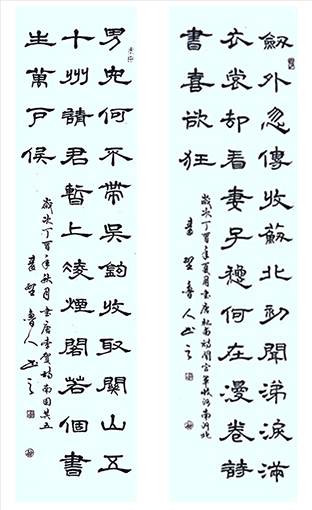 劔外忽傳收薊北初聞涕淚滿
衣裳却看妻子愁何在漫卷詩
書喜欲狂
歲次丁酉年夏月書唐杜甫詩聞官軍收河南河北
魯人書之
男兒何不帶吳鈎收取關山五
十州請君暫上凌煙閣若個書
生萬戶侯
歲次丁酉年秋月書唐李賀詩南園其五
魯人書之